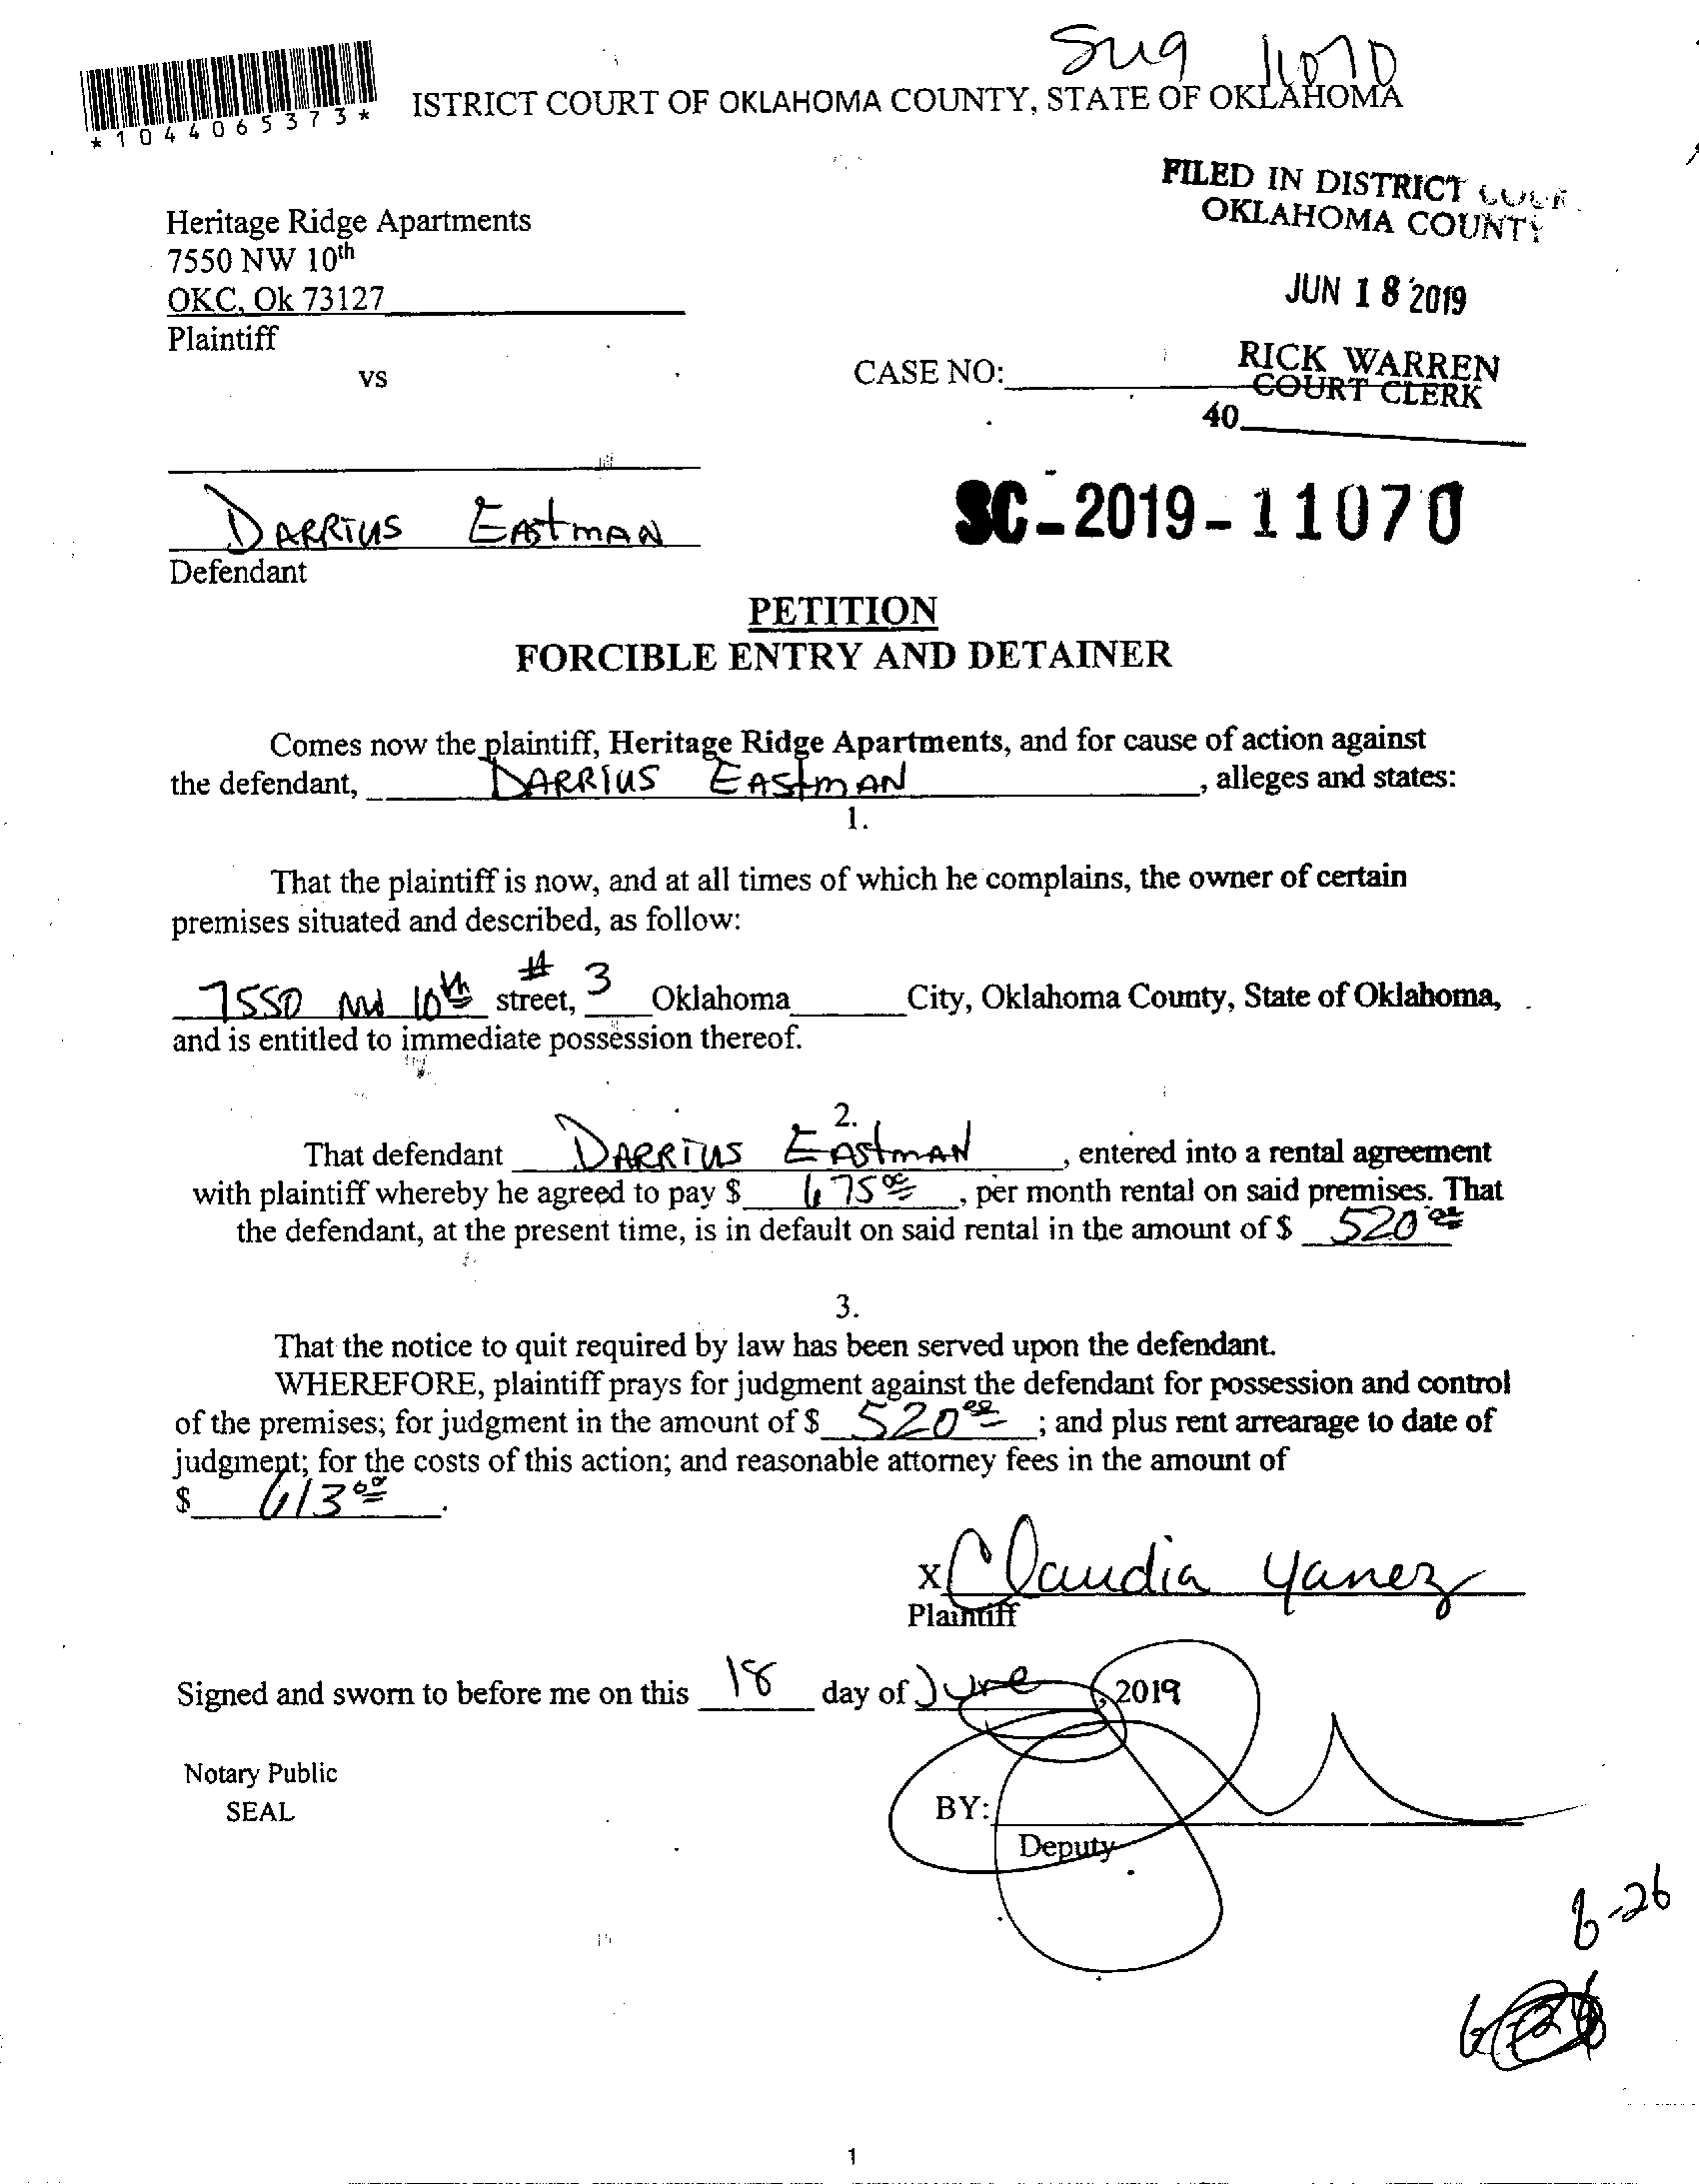 *1044065373*
ISTRICT COURT OF OKLAHOMA COUNTY, STATE OF OKLAHOMA
FILED IN DISTRICT
OKLAHOMA COUNTY
Heritage Ridge Apartments
7550 NW 10th
OKC, Ok 73127
Plaintiff
JUN 18 2019
RICK WARREN
COURT CLERK
vs
CASE NO:
40
SC-2019-11070
DARRIUS EASTMAN
Defendant
PETITION
FORCIBLE ENTRY AND DETAINER
Comes now the plaintiff, Heritage Ridge Apartments, and for cause of action against
the defendant, DARRIUS EASTMAN, alleges and states:
1.
That the plaintiff is now, and at all times of which he complains, the owner of certain
premises situated and described, as follow:
7550 NW 10th street, # 3 Oklahoma City, Oklahoma County, State of Oklahoma,
and is entitled to immediate possession thereof.
2.
That defendant DARRIUS EASTMAN, entered into a rental agreement
with plaintiff whereby he agreed to pay $ 675 00, per month rental on said premises. That
the defendant, at the present time, is in default on said rental in the amount of $ 520 00
3.
That the notice to quit required by law has been served upon the defendant.
WHEREFORE, plaintiff prays for judgment against the defendant for possession and control
of the premises; for judgment in the amount of $ 520 00; and plus rent arrearage to date of
judgment; for the costs of this action; and reasonable attorney fees in the amount of
$ 613 00.
x Claudia Yanez
Plaintiff
Signed and sworn to before me on this 18 day of June, 2019
Notary Public
SEAL
BY:
Deputy
1